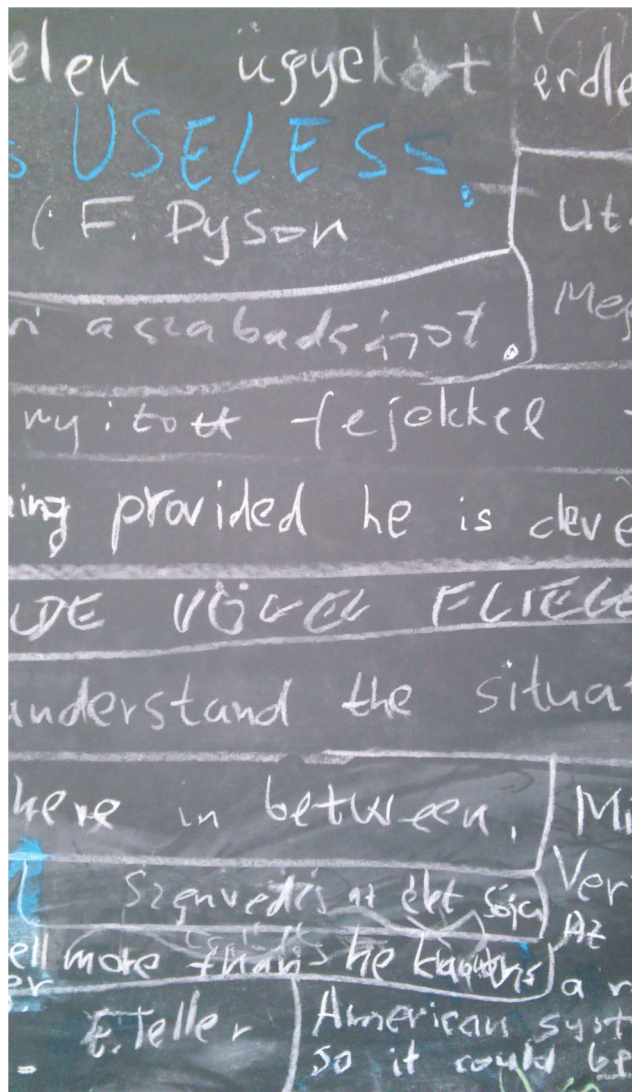 elen ügyekét erdle
s USELESS.
(F. Dyson
Ut
n' a szabadságot.
Meg
nyitott fejekkel
ing provided he is cleve
LDE VÖGEL FLIEGE
understand the situat
here in between.
Mi
Szenvedés az élet sója
Ver
Az
ell more than he knows
er
a n
E. Teller
American syst
so it could be